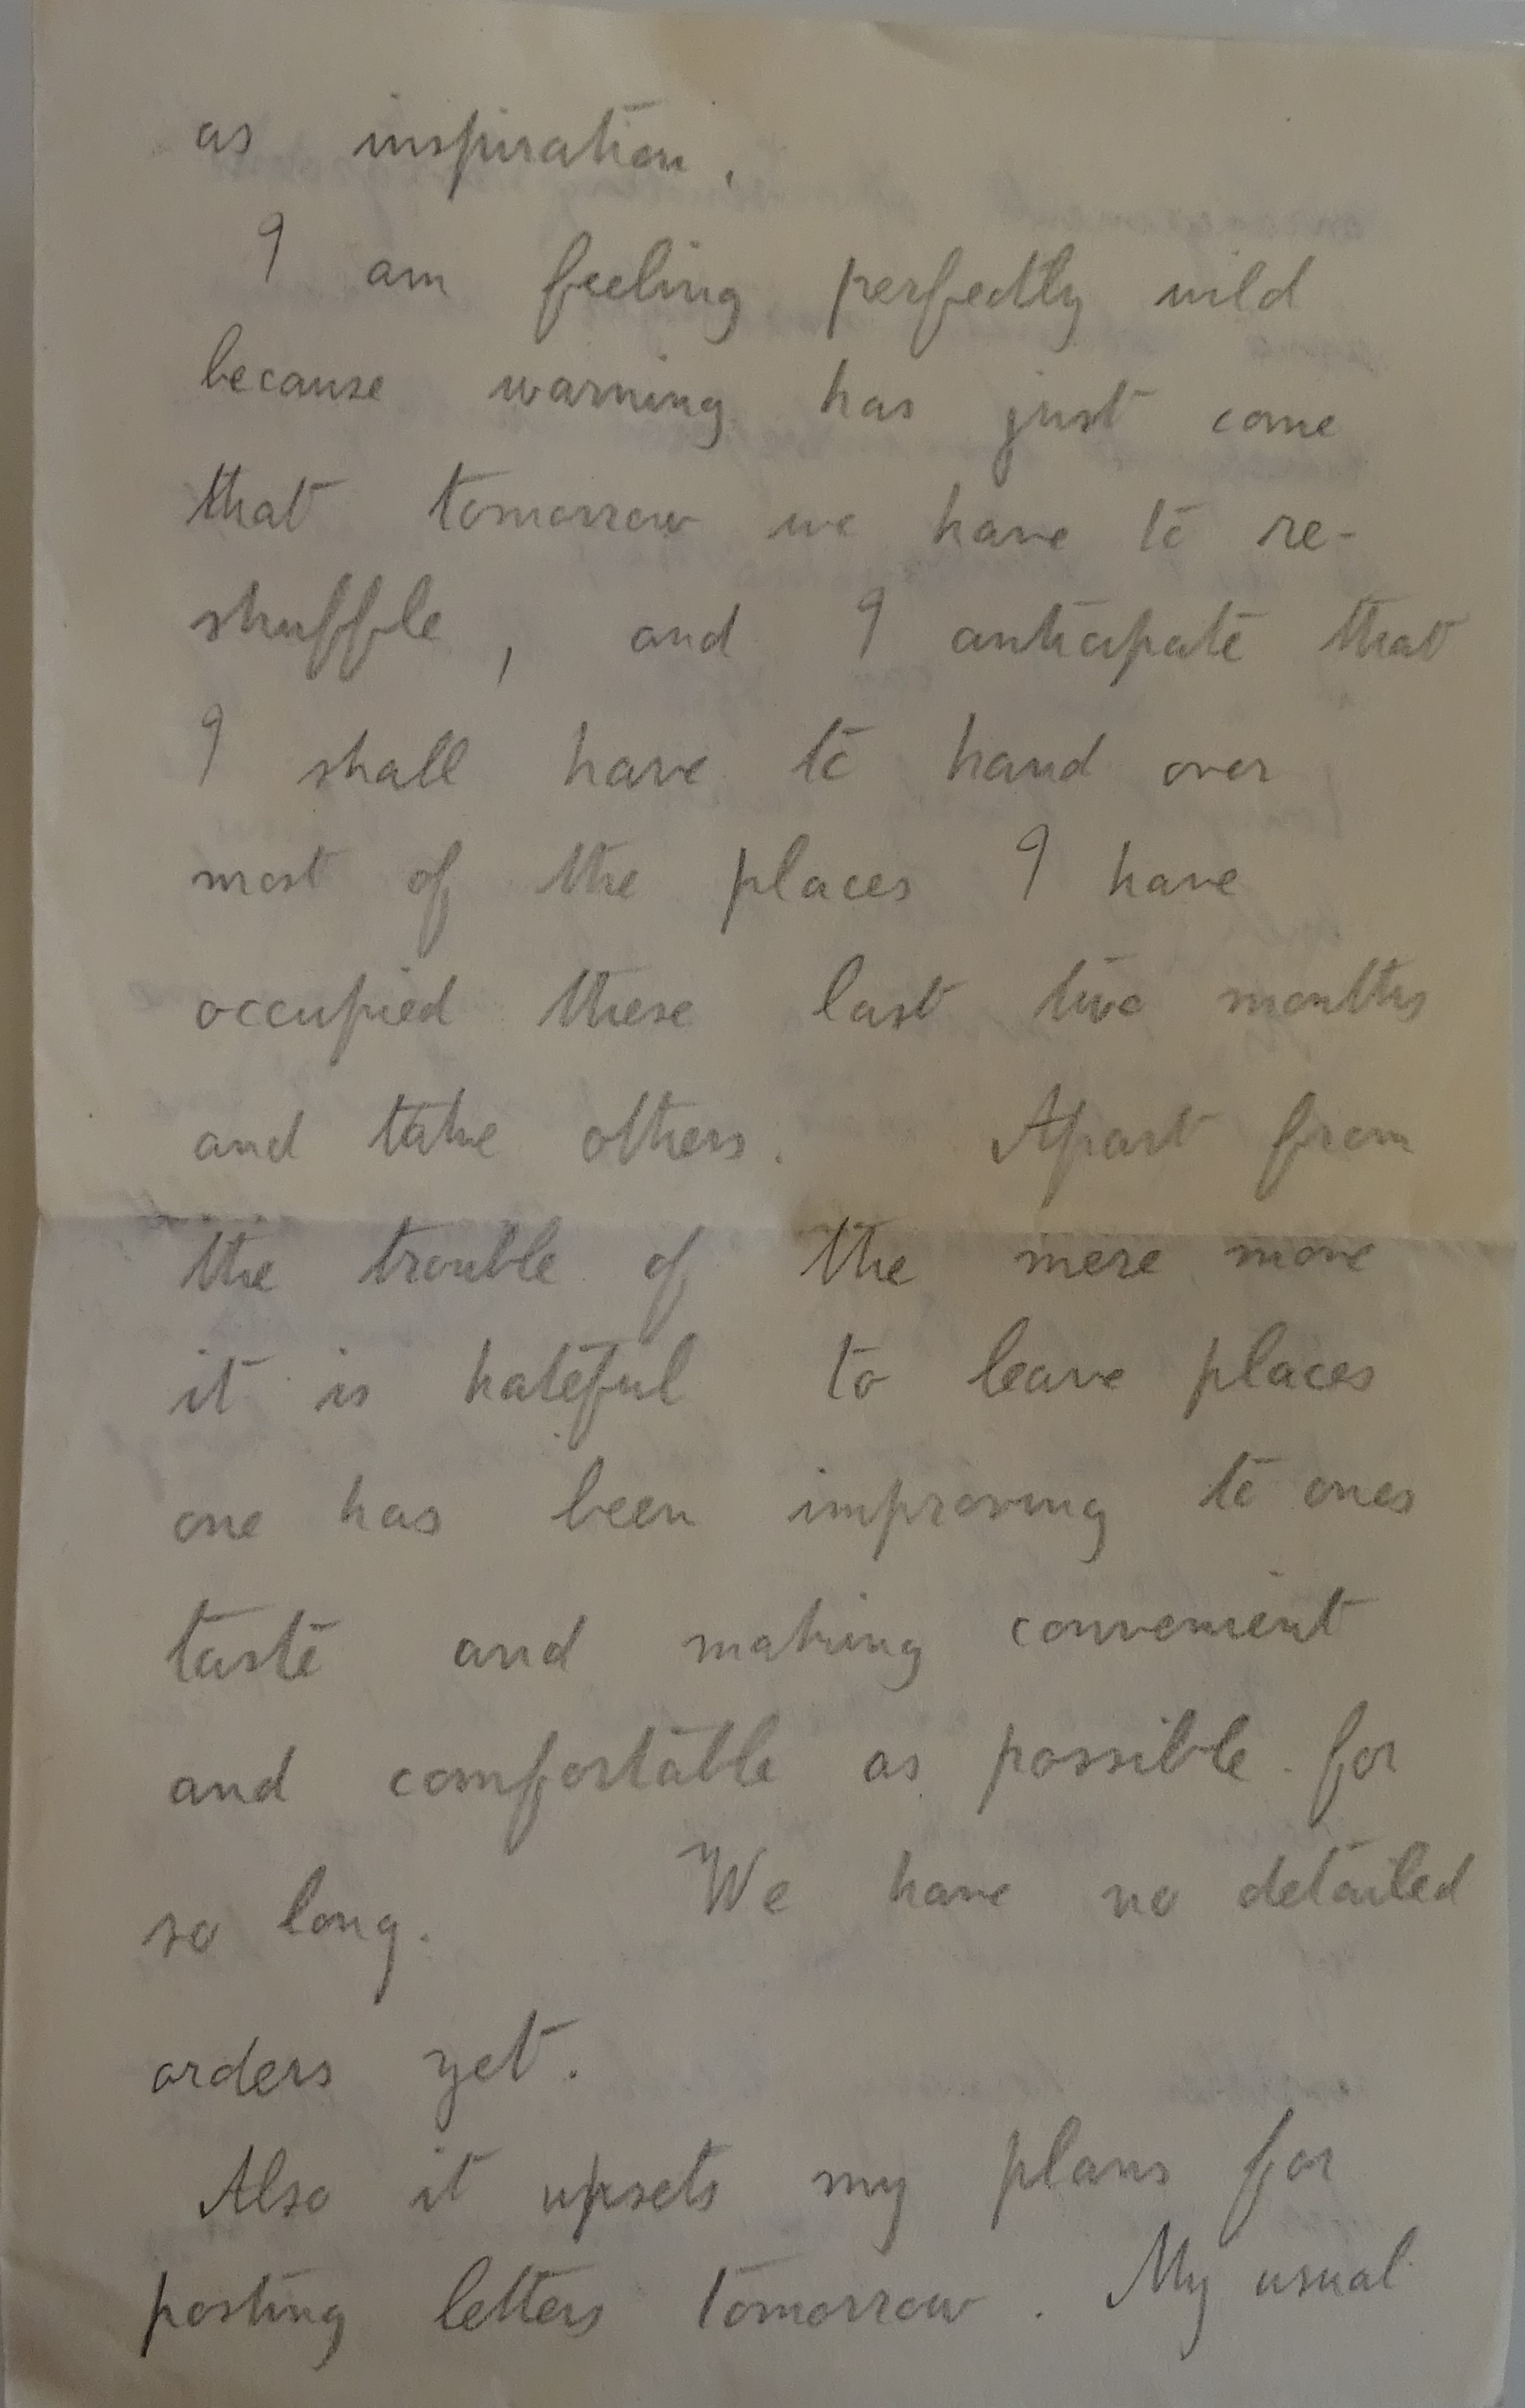 as inspiration.
I am feeling perfectly wild
because warning has just come
that tomorrow we have to re-
shuffle, and I anticipate that
I shall have to hand over
most of the places I have
occupied these last two months
and take others. Apart from
the trouble of the mere move
it is hateful to leave places
one has been improving to ones
taste and making convenient
and comfortable as possible for
so long. We have no detailed
orders yet.
Also it upsets my plans for
posting letters tomorrow. My usual